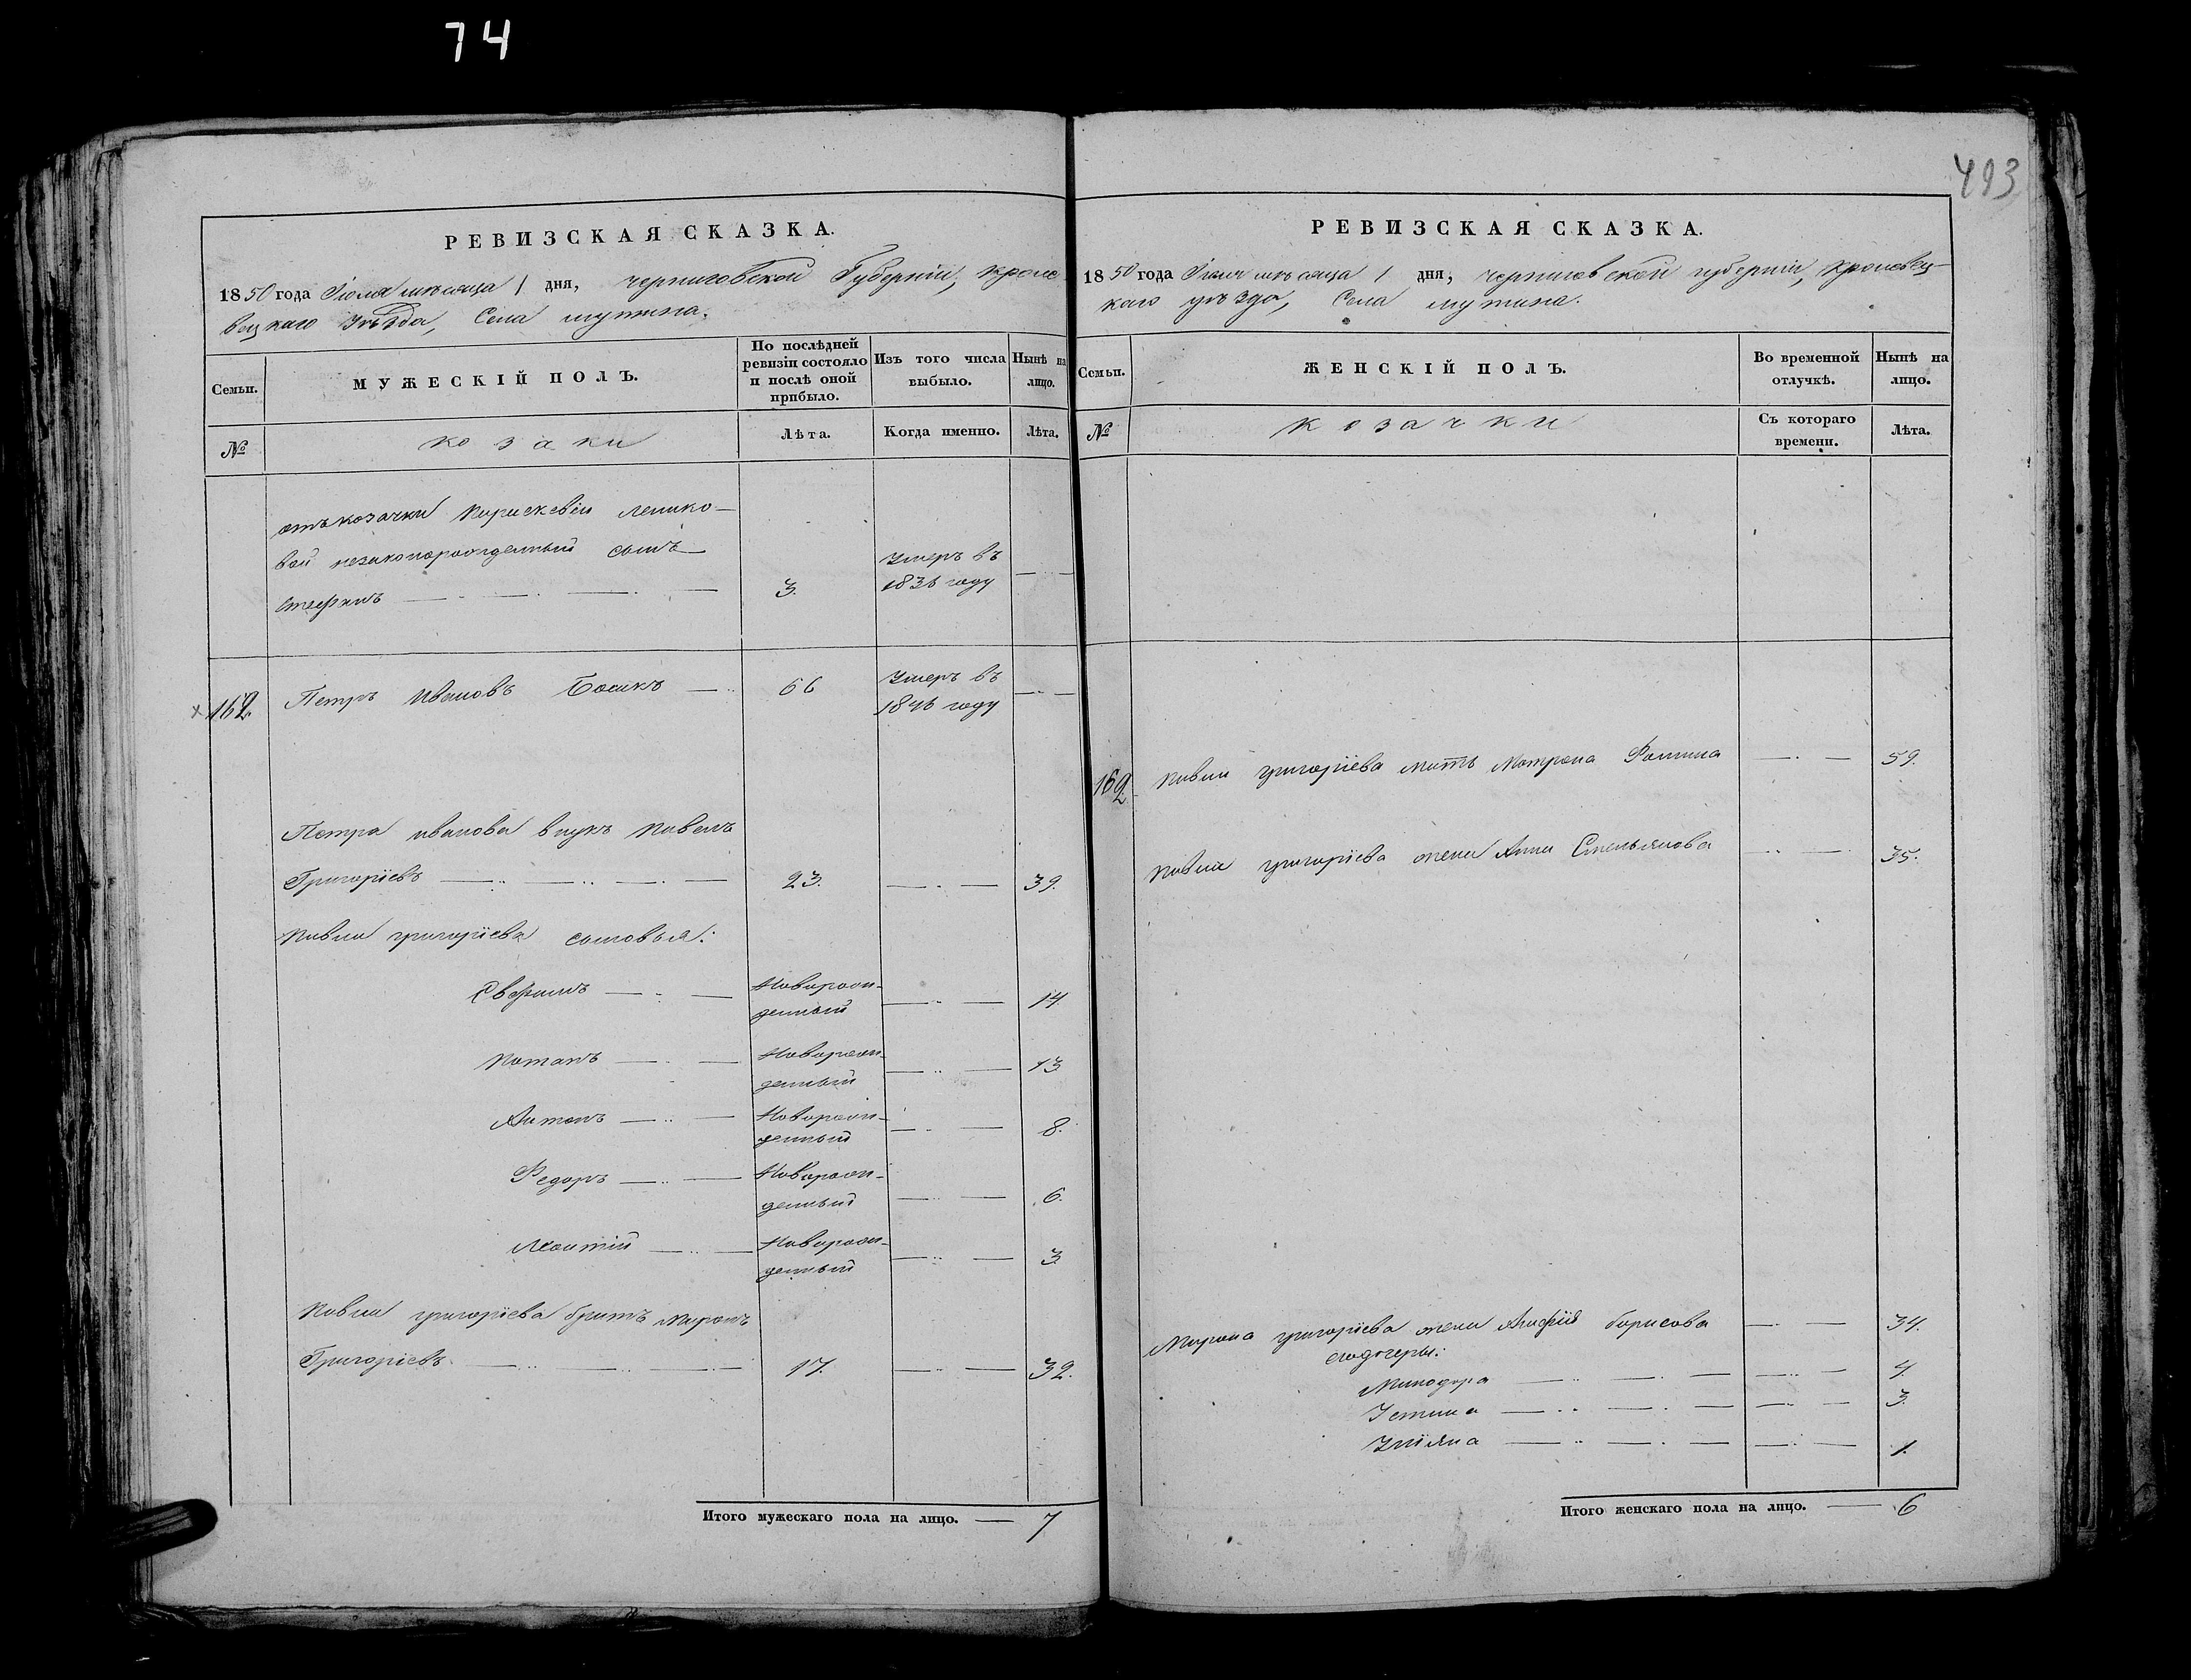 74
493
РЕВИЗСКАЯ СКАЗКА.
1850 года Іюля мѣсяца 1 дня, Черниговской Губерніи, Кроле-
вецкаго Уѣзда, Села Мутина.
Семьи.
МУЖЕСКІЙ ПОЛЪ.
По послѣдней
ревизіи состояло
и послѣ оной
прибыло.
Изъ того числа
выбыло.
Нынѣ на
лицо.
№
козаки
Лѣта.
Когда именно.
Лѣта.
отъ козачки Параскевіи
незаконорожденный сынъ
Стефанъ — 3. Умеръ въ
1836 году —
162. Петръ Ивановъ Босикъ — 66 Умеръ въ
1846 году —
Петра Иванова внукъ Павелъ
Григоріевъ — 23. — 39.
Павла Григоріева сыновья:
Новорож-
денный — 14.
Потапъ — Новорож-
денный — 13
Антонъ — Новорож-
денный — 8.
Федоръ — Новорож-
денный — 6.
Леонтій — Новорож-
денный — 3
Павла Григоріева братъ Миронъ
Григоріевъ — 17. — 32.
Итого мужескаго пола на лицо. — 7
РЕВИЗСКАЯ СКАЗКА.
1850 года Іюля мѣсяца 1 дня, Черниговской губерніи, Кролевец-
каго уѣзда, Села Мутина.
Семьи.
ЖЕНСКІЙ ПОЛЪ.
Во временной
отлучкѣ.
Нынѣ на
лицо.
№
козачки
Съ котораго
времени.
Лѣта.
162. Павла Григоріева мать Матрона Фомина — 59.
Павла Григоріева жена Анна Емельянова — 35.
Мирона Григоріева жена Агафія Борисова — 34.
его дочери:
Минодора — 4.
Устина — 3.
Уліяна — 1.
Итого женскаго пола на лицо. — 6